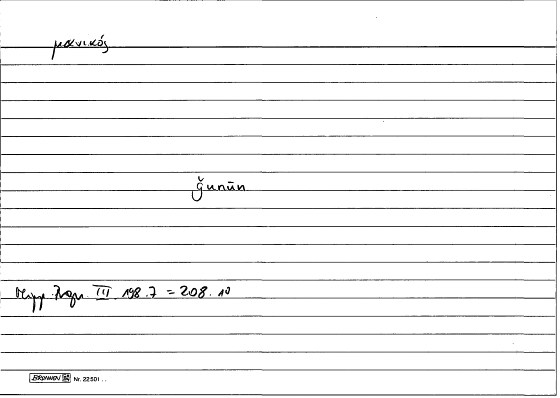 μανικός
ǧunūn
Hipp. Progn. III 198.7 = 208.10
BRUNNEN Nr. 22501 . .